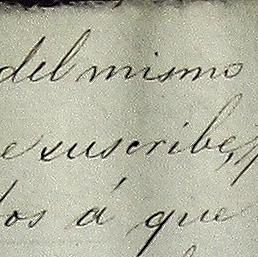 del mismo
e suscribe,
tos á que